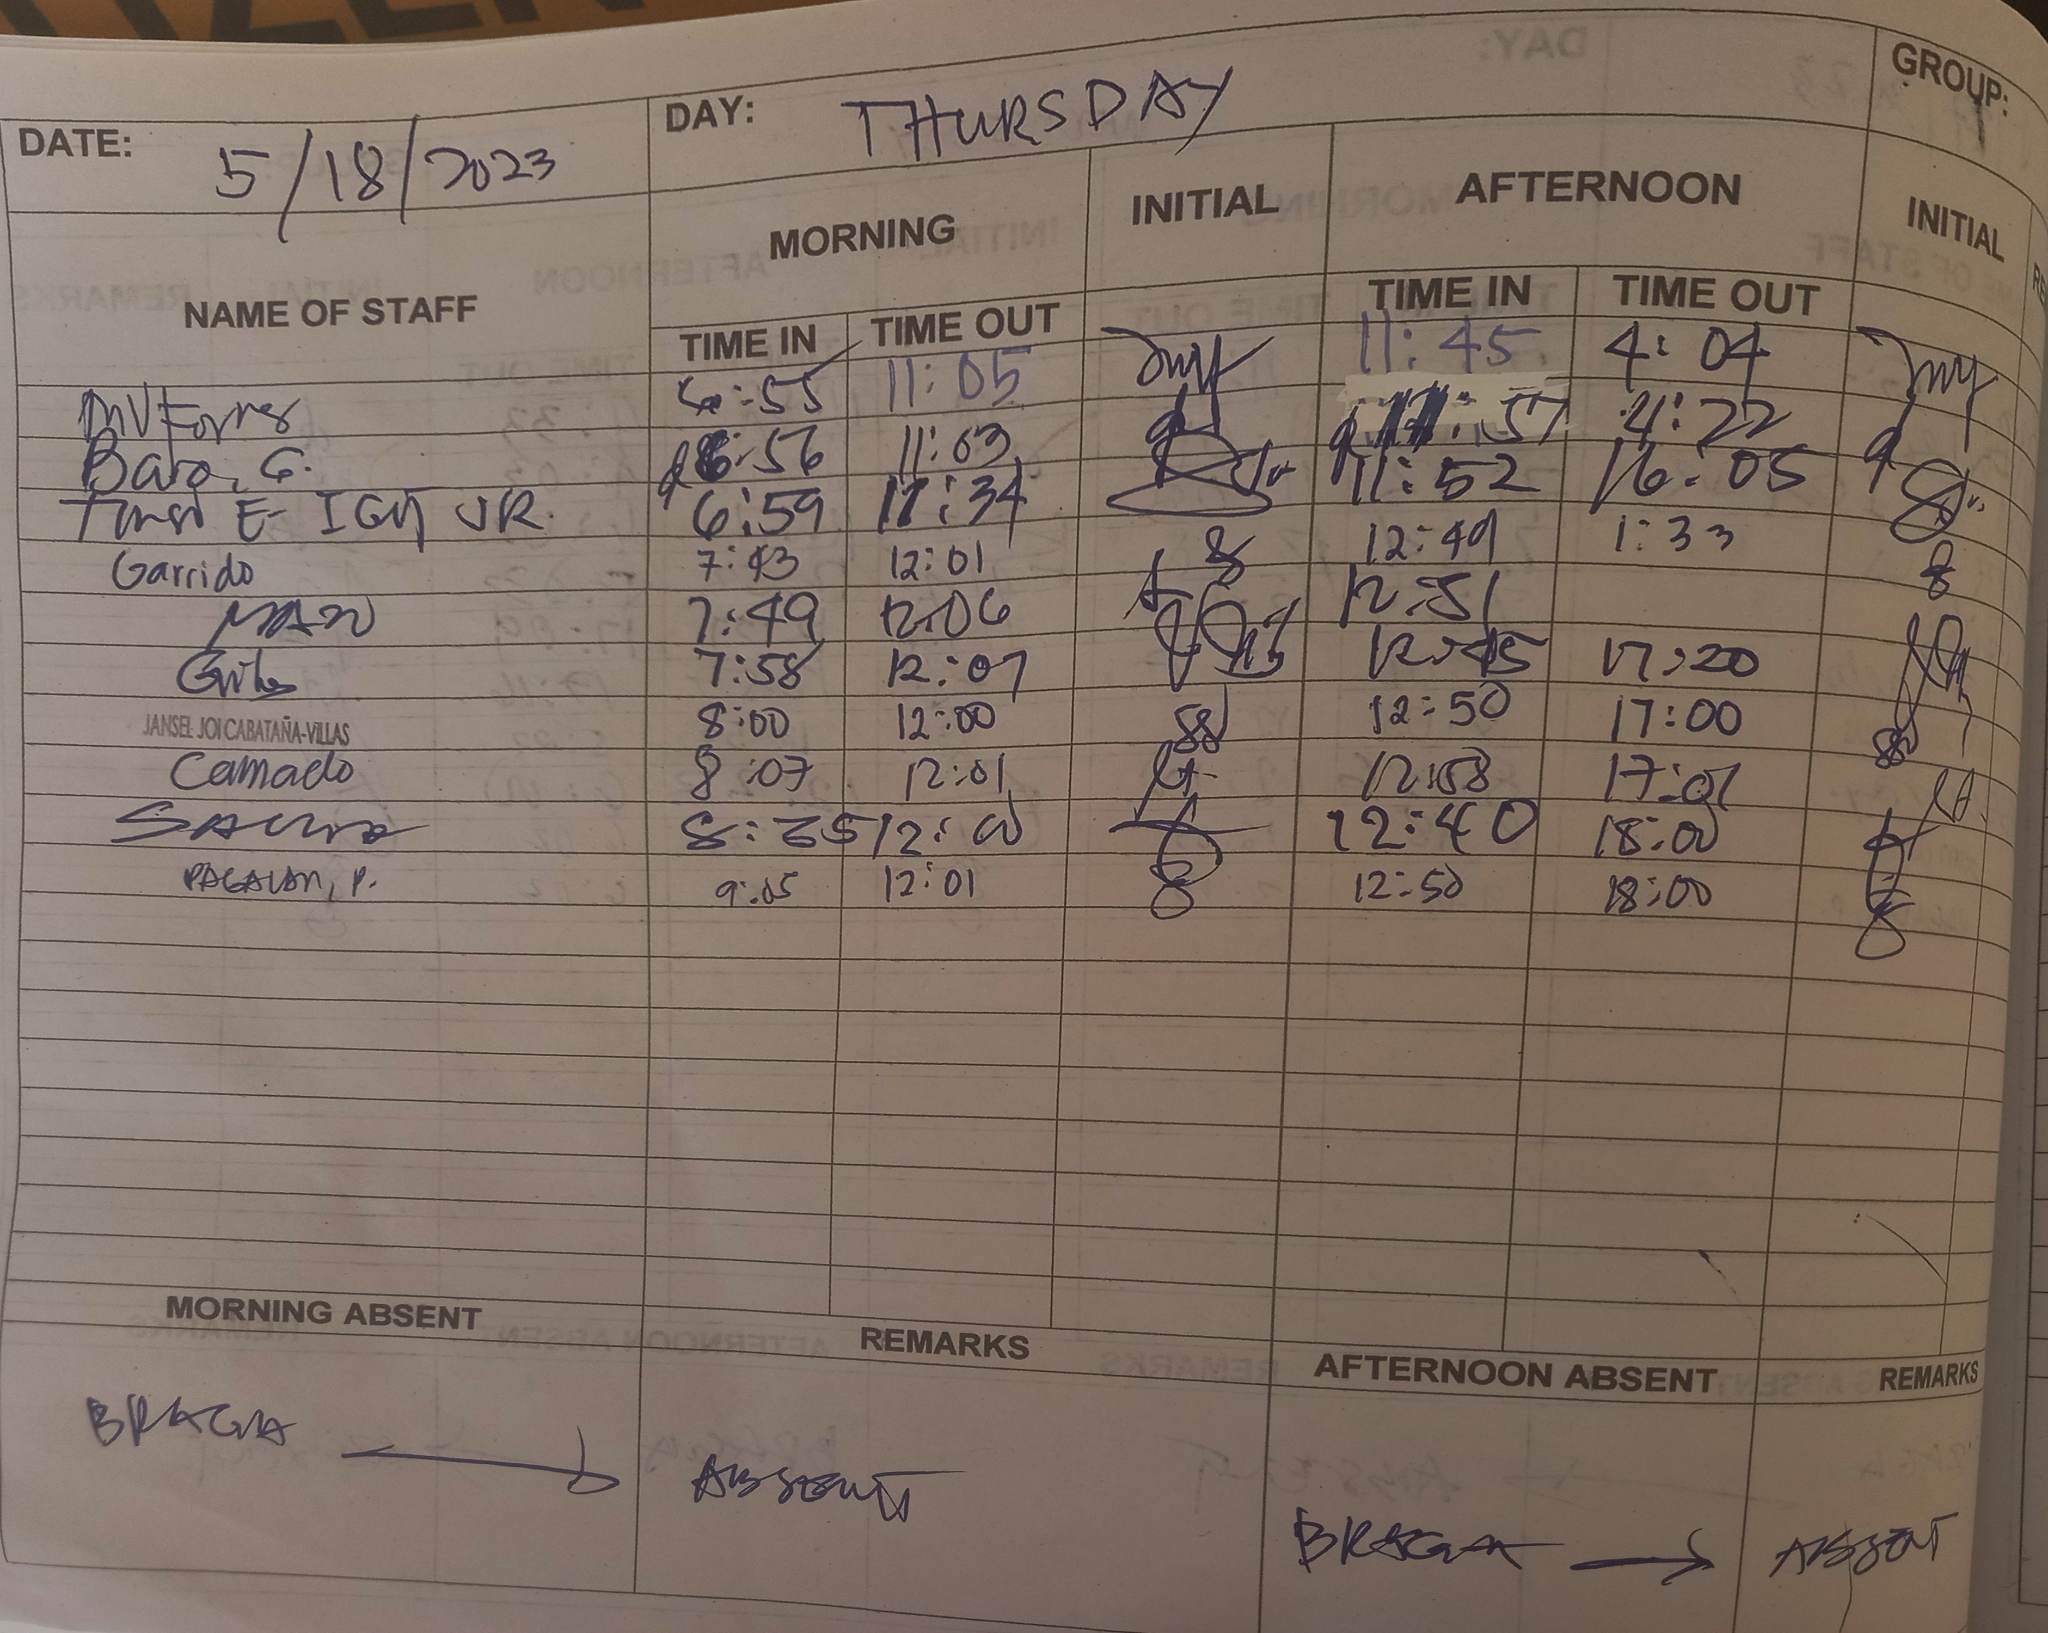 DATE: 5/18/2023 DAY: THURSDAY GROUP:
NAME OF STAFF MORNING INITIAL AFTERNOON INITIAL
TIME IN TIME OUT TIME IN TIME OUT
MVTorres 6:55 11:05 11:45 4:04
Baro, G. 6:56 11:03 :57 4:22
E- JR. 6:59 11:34 11:52 16:05
Garrido 7:43 12:01 12:49 1:33
7:49 12:06 12:51
7:58 12:07 12:45 17:20
JANSEL JOI CABATAÑA-VILLAS 8:00 12:00 12:50 17:00
Camado 8:07 12:01 12:58 17:01
8:35 12:00 12:40 18:00
PAGALAN, P. 9:05 12:01 12:50 18:00
MORNING ABSENT REMARKS AFTERNOON ABSENT REMARKS
BRAGA → ABSENT
BRAGA → ABSENT